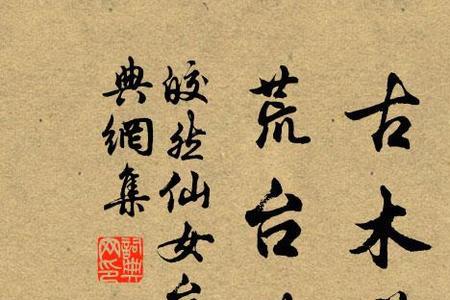 古木
荒台
皎然仙女台
典網集
詞典
网印